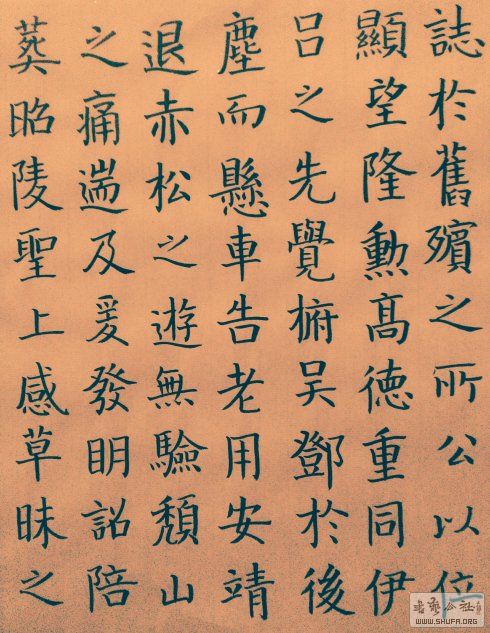 誌於舊殯之所公以位
顯望隆勳髙德重同伊
呂之先覺俯吴鄧於後
塵而懸車告老用安靖
退赤松之遊無驗頽山
之痛遄及爰發明詔陪
葬昭陵聖上感草昧之
WWW.SHUFA.ORG